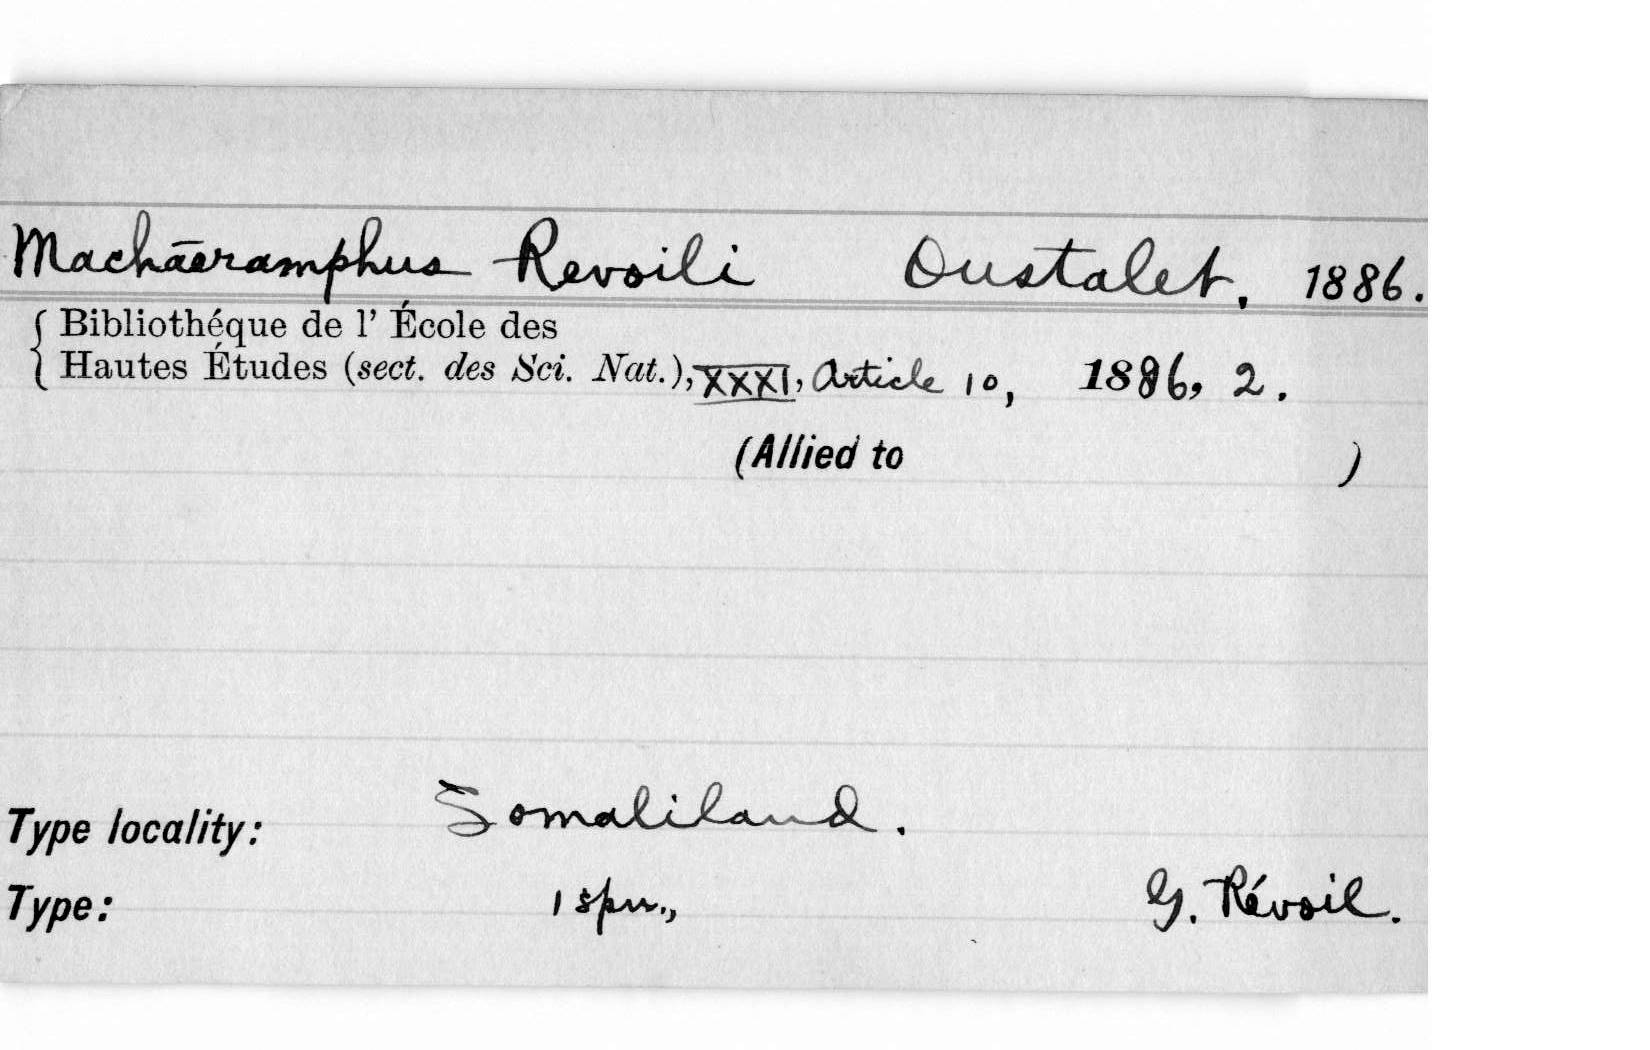 Machaeramphus Revoili Oustalet, 1886.
Bibliothéque de l' École des
Hautes Études (sect. des Sci. Nat.), XXXI, Article 10, 1886, 2.
(Allied to )
Type locality: Somaliland.
Type: 1 spn., G. Révoil.